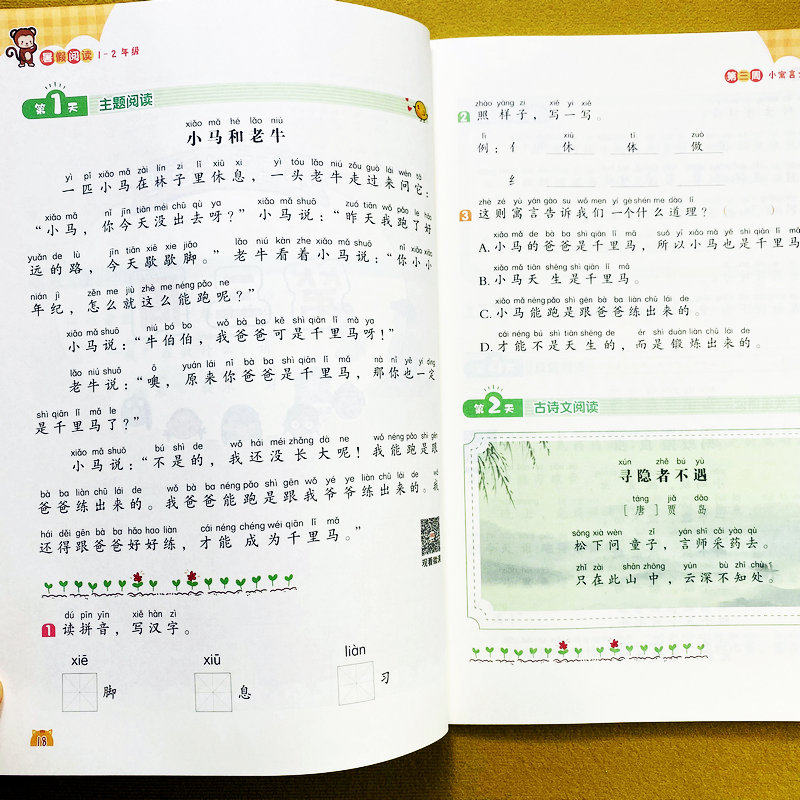 暑假阅读 1-2年级
第1天 主题阅读
xiǎo mǎ hé lǎo niú
小马和老牛
yì pǐ xiǎo mǎ zài lín zi lǐ xiū xi yì tóu lǎo niú zǒu guò lái wèn tā
一匹小马在林子里休息，一头老牛走过来问它：
xiǎo mǎ nǐ jīn tiān méi chū qù ya xiǎo mǎ shuō zuó tiān wǒ pǎo le hǎo
“小马，你今天没出去呀？”小马说：“昨天我跑了好
yuǎn de lù jīn tiān xiē xie jiǎo lǎo niú kàn zhe xiǎo mǎ shuō nǐ xiǎo xiǎo
远的路，今天歇歇脚。”老牛看着小马说：“你小小
nián jì zěn me jiù zhè me néng pǎo ne
年纪，怎么就这么能跑呢？”
xiǎo mǎ shuō niú bó bo wǒ bà ba kě shì qiān lǐ mǎ ya
小马说：“牛伯伯，我爸爸可是千里马呀！”
lǎo niú shuō ò yuán lái nǐ bà ba shì qiān lǐ mǎ nà nǐ yě yí dìng
老牛说：“噢，原来你爸爸是千里马，那你也一定
shì qiān lǐ mǎ le
是千里马了？”
xiǎo mǎ shuō bú shì de wǒ hái méi zhǎng dà ne wǒ néng pǎo shì gēn
小马说：“不是的，我还没长大呢！我能跑是跟
bà ba liàn chū lái de wǒ bà ba néng pǎo shì gēn wǒ yé ye liàn chū lái de wǒ
爸爸练出来的。我爸爸能跑是跟我爷爷练出来的。我
hái děi gēn bà ba hǎo hao liàn cái néng chéng wéi qiān lǐ mǎ
还得跟爸爸好好练，才能成为千里马。”
观看微课
dú pīn yīn xiě hàn zì
1 读拼音，写汉字。
xiē xiū liàn
脚 息 习
18
第三周 小寓言
zhào yàng zi xiě yi xiě
2 照样子，写一写。
lì xiū tǐ zuò
例：亻 休 体 做
纟
zhè zé yù yán gào su wǒ men yí gè shén me dào lǐ
3 这则寓言告诉我们一个什么道理？（ ）
xiǎo mǎ de bà ba shì qiān lǐ mǎ suǒ yǐ xiǎo mǎ yě shì qiān lǐ mǎ
A.小马的爸爸是千里马，所以小马也是千里马
xiǎo mǎ tiān shēng shì qiān lǐ mǎ
B.小马天生是千里马。
xiǎo mǎ néng pǎo shì gēn bà ba liàn chū lái de
C.小马能跑是跟爸爸练出来的。
cái néng bú shì tiān shēng de ér shì duàn liàn chū lái de
D.才能不是天生的，而是锻炼出来的。
第2天 古诗文阅读
xún yǐn zhě bú yù
寻隐者不遇
táng jiǎ dǎo
[唐] 贾岛
sōng xià wèn tóng zǐ yán shī cǎi yào qù
松下问童子，言师采药去。
zhǐ zài cǐ shān zhōng yún shēn bù zhī chù
只在此山中，云深不知处。